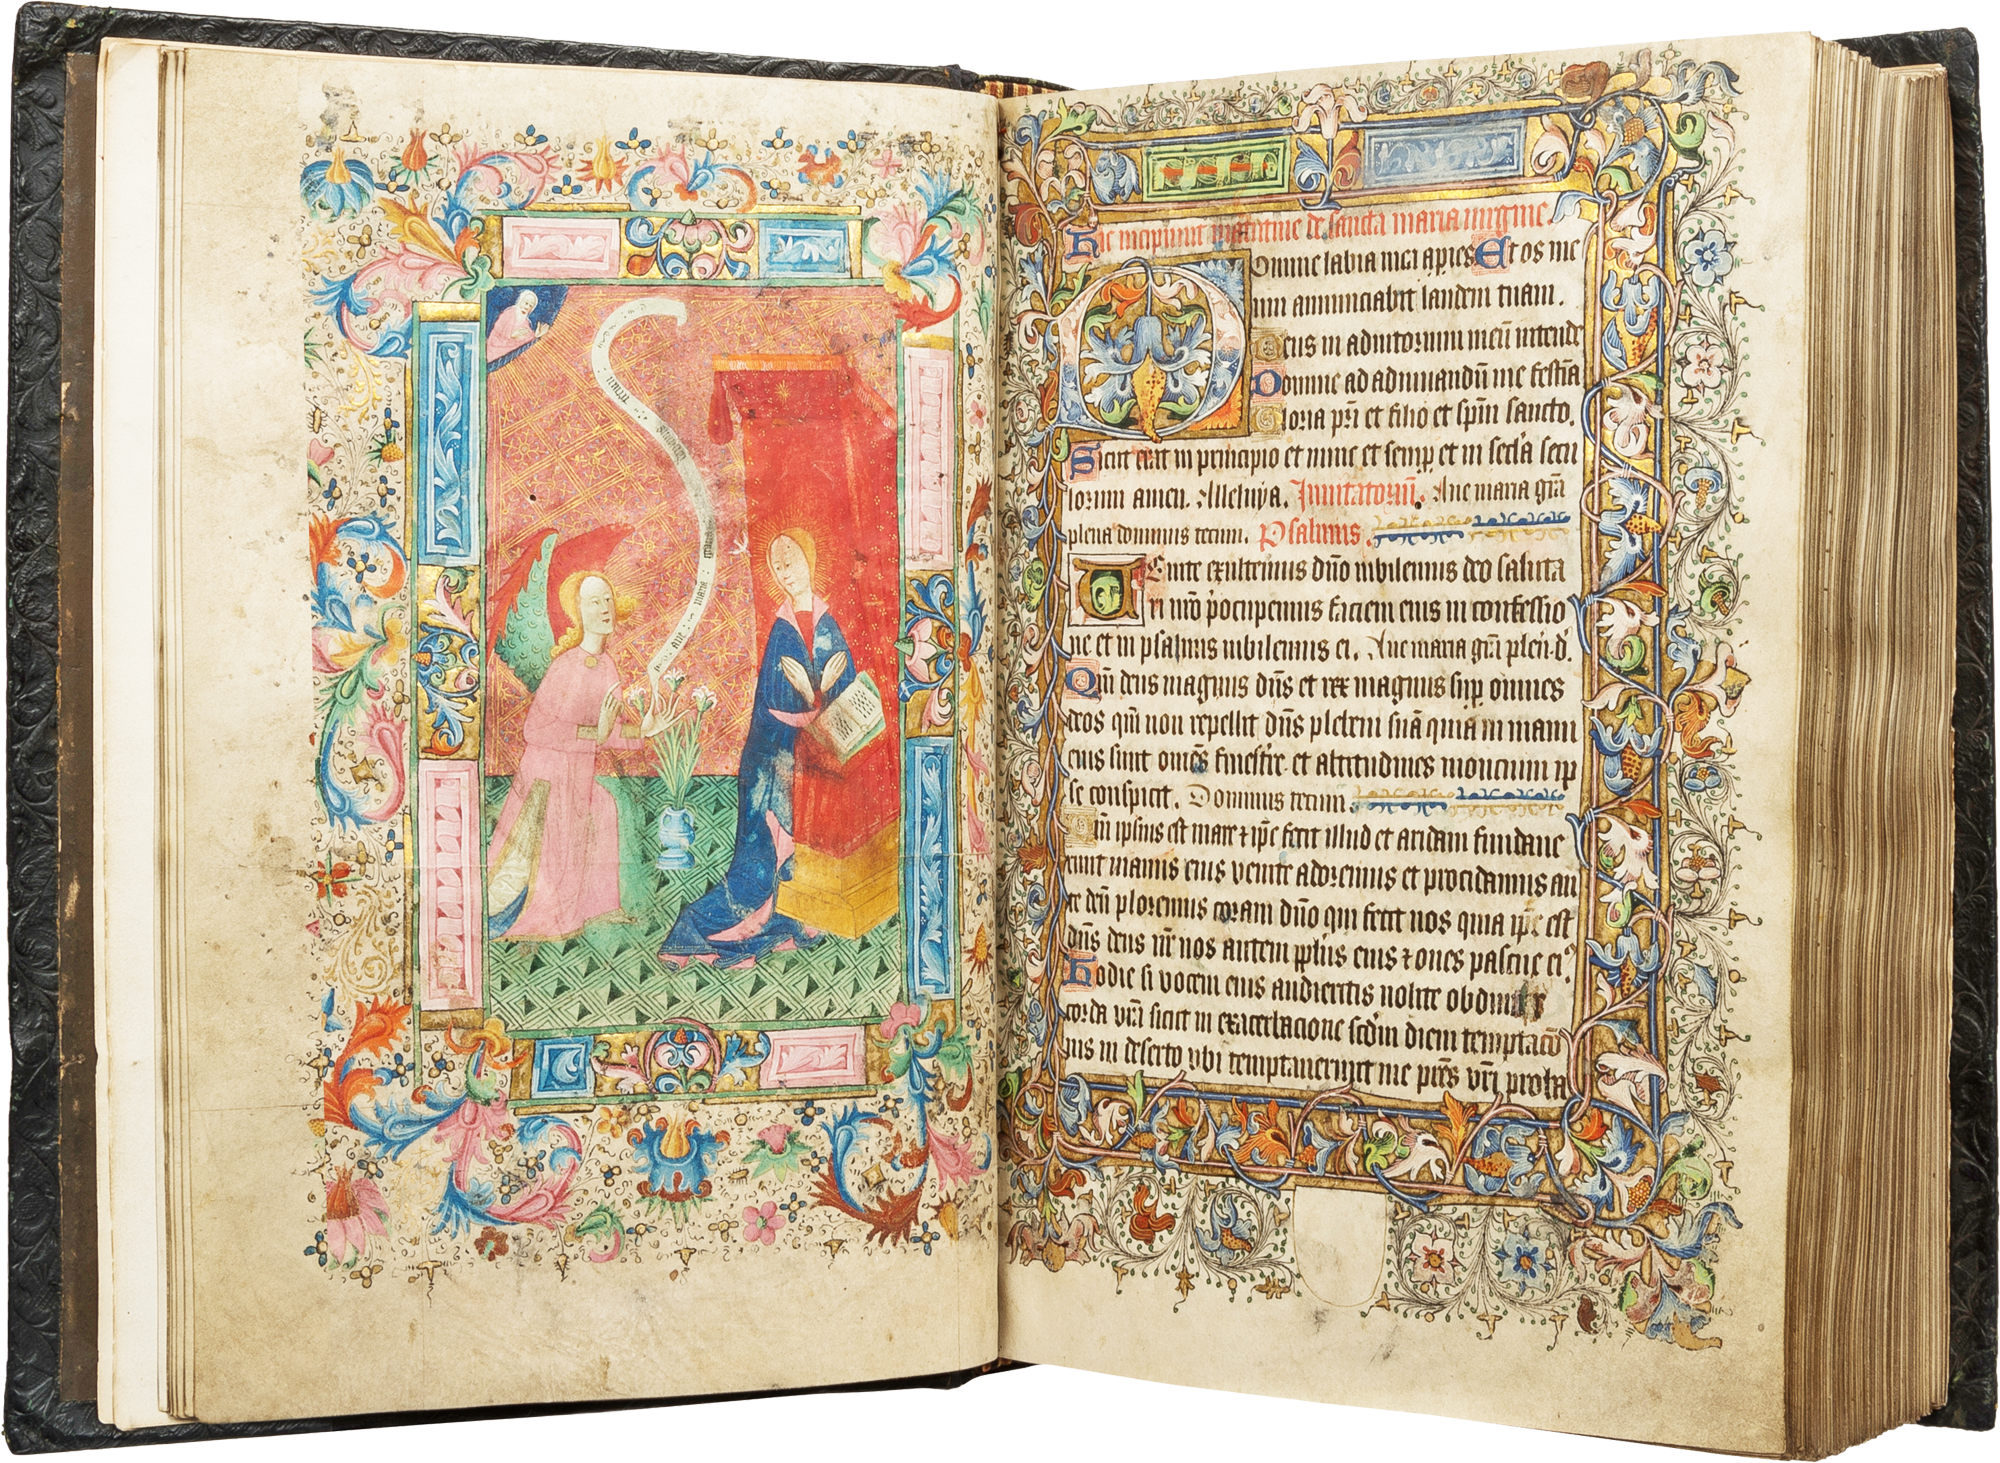 ave maria gracia
dominus tecum
Hic incipiunt matutine de sancta maria virgine.
Domine labia mea aperies Et os me
um annunciabit laudem tuam.
Deus in adiutorium meū intende
Domine ad adiuuandū me festīa
Gloria pr̄i et filio et spūi sancto.
Sicut erat in principio et nunc et semꝑ et in secl'a secu
lorum amen. Alleluya. Inuitatoriū. Aue maria grā
plena dominus tecum. Psalmus.
Uenite exultemus dn̄o iubilemus deo saluta
ri nr̄o p̄ocupemus faciem eius in confessio
ne et in psalmis iubilemus ei. Aue maria grā plen. d.
Qm̄ deus magnus dn̄s et rex magnus suꝑ omnes
deos qm̄ non repellit dn̄s plebem suā quia in manu
eius sunt om̄es fines tr̄e et altitudines moncium ip
se conspicit. Dominus tecum
Qm̄ ipsius est mare ⁊ ip̄e fecit illud et aridam fundaue
runt manus eius uenite adoremus et procidamus an
te deū ploremus coram dn̄o qui fecit nos quia ip̄e est
dn̄s deus nr̄ nos autem ppl'us eius ⁊ oues pascue eiꝰ
Hodie si uocem eius audieritis nolite obdurar
corda vr̄a sicut in exacerbacione scd'm diem temptacō
nis in deserto vbi temptauerunt me pr̄es vr̄i proba